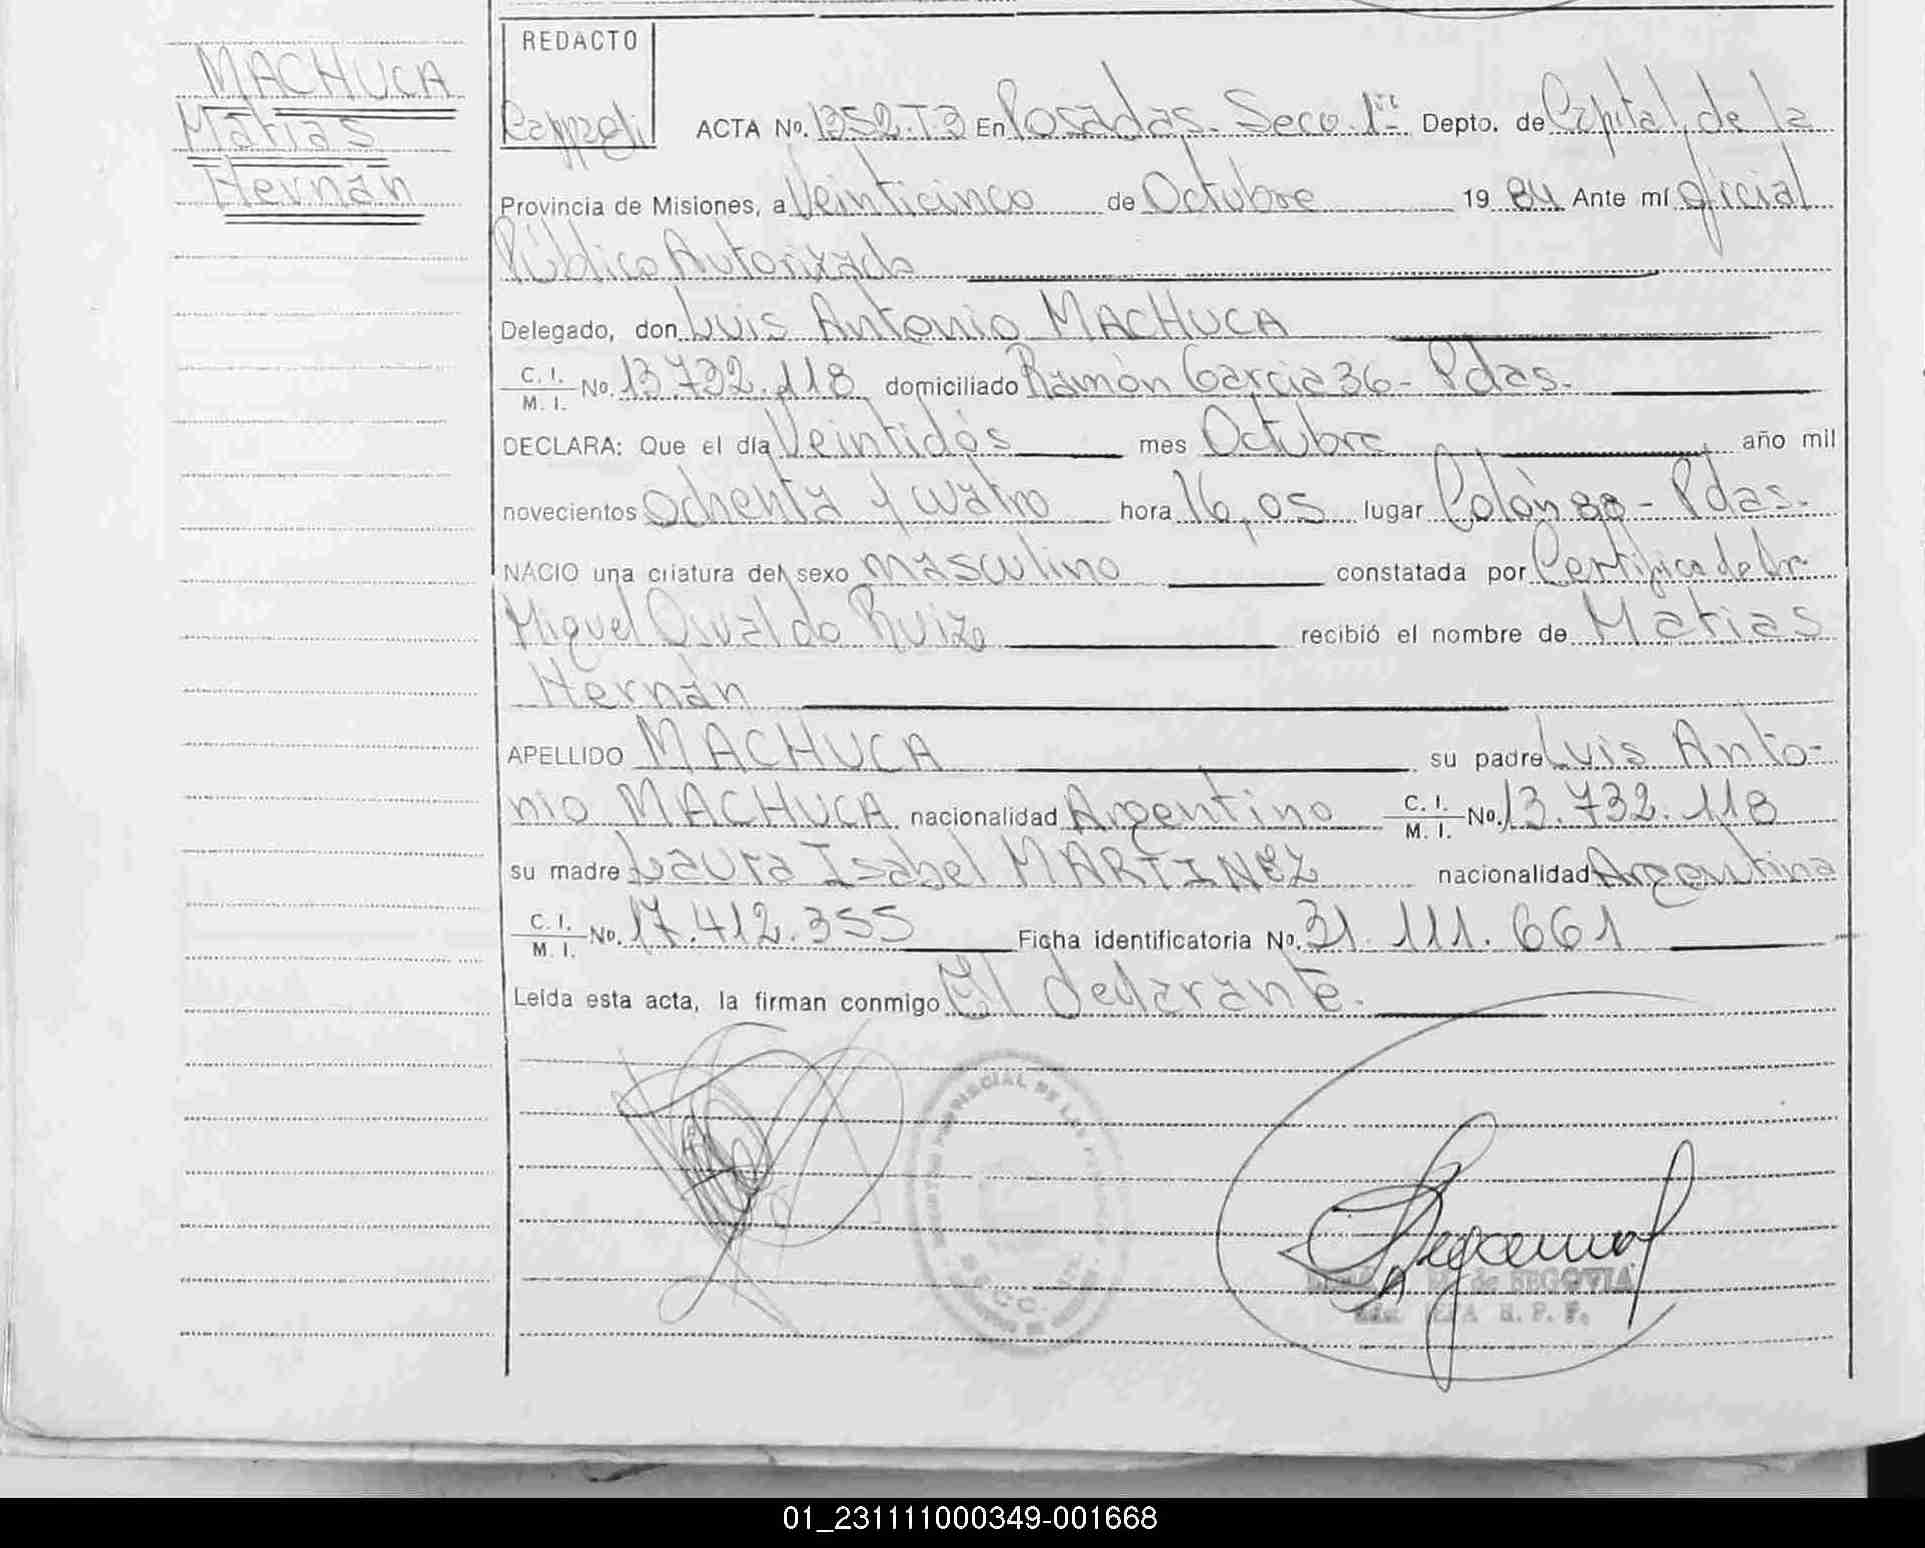 MACHUCA
Matias
Hernán
REDACTO
ACTA No. 1352-T3 En Posadas. Secc. 1ra Depto. de Capital, de la
Provincia de Misiones, a Veinticinco de Octubre 19 84 Ante mí oficial
Público Autorizado
Delegado, don Luis Antonio MACHUCA
C. I. / M. I. No. 13.732.118 domiciliado Ramón Garcia 36- Pdas.
DECLARA: Que el día Veintidós mes Octubre año mil
novecientos ochenta y cuatro hora 16,05 lugar Colón 88- Pdas.
NACIO una criatura del sexo masculino constatada por Certifica do Dr.
Miguel Osvaldo Ruizo
recibió el nombre de Matias
Hernán
APELLIDO MACHUCA su padre Luis Anto-
nio MACHUCA nacionalidad Argentino C. I. / M. I. No. 13.732.118
su madre Laura Isabel MARTINEZ nacionalidad Argentina
C. I. / M. I. No. 17.412.355 Ficha identificatoria No. 31.111.661
Leída esta acta, la firman conmigo El declarante.
de SEGOVIA
R. P. F.
01_231111000349-001668